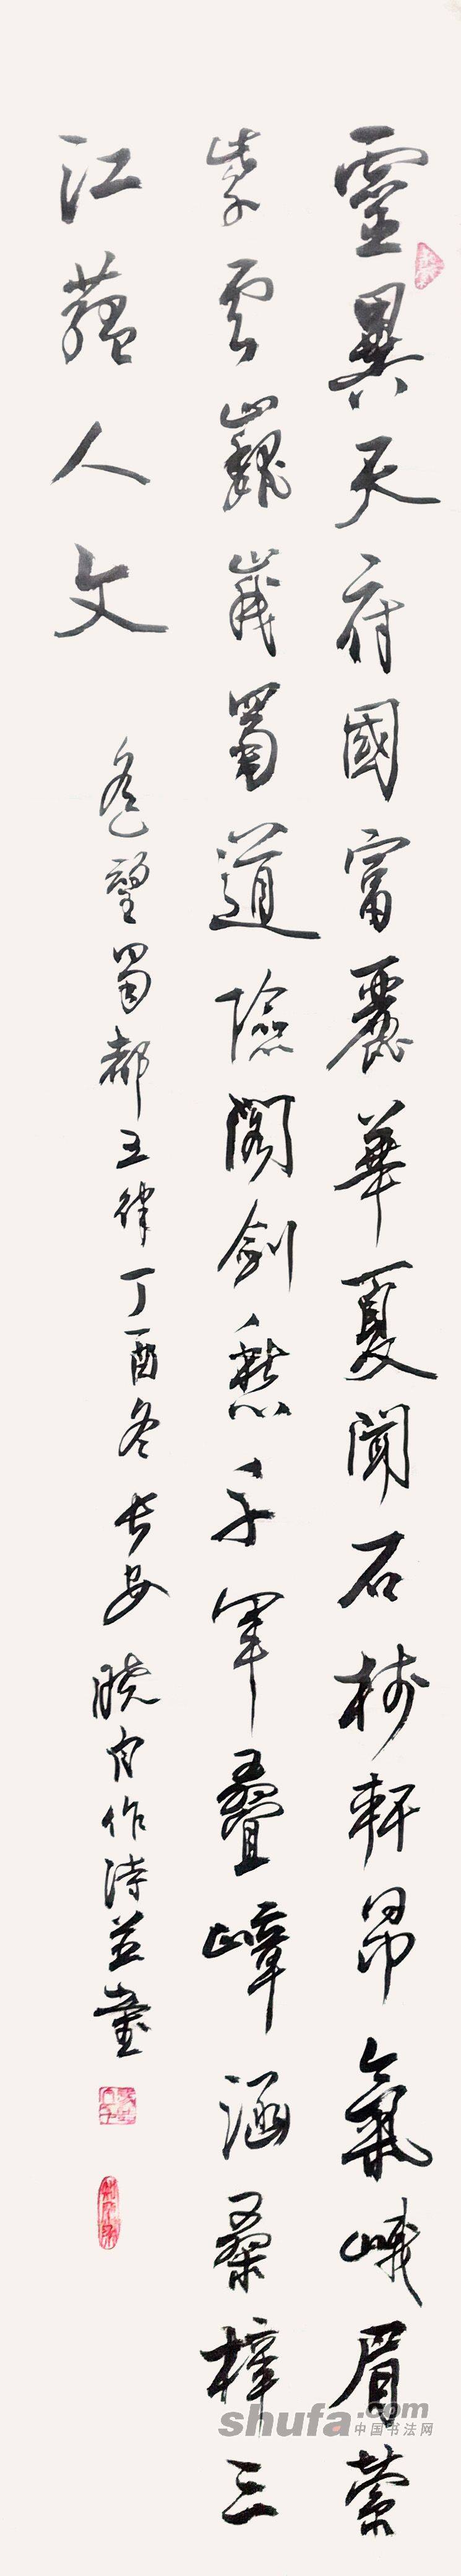 靈異天府國富麗華夏聞石梯軒昂氣峨眉縈
紫雲巍峩蜀道險閣劍愁千軍疊嶂涵桑梓三
江蘊人文
遙望蜀都五律丁酉冬長安曉白作詩並書
shufa.com
中国书法网